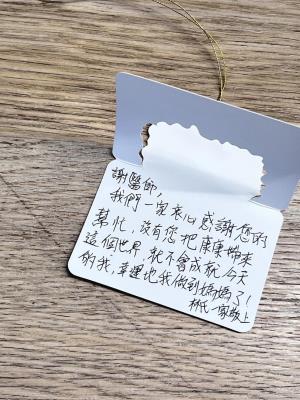 謝醫師,
我們一家衷心感謝您的
幫忙,沒有您把康康帶來
這個世界,就不會成就今天
的我,幸運地我做到媽媽了!
林氏一家敬上